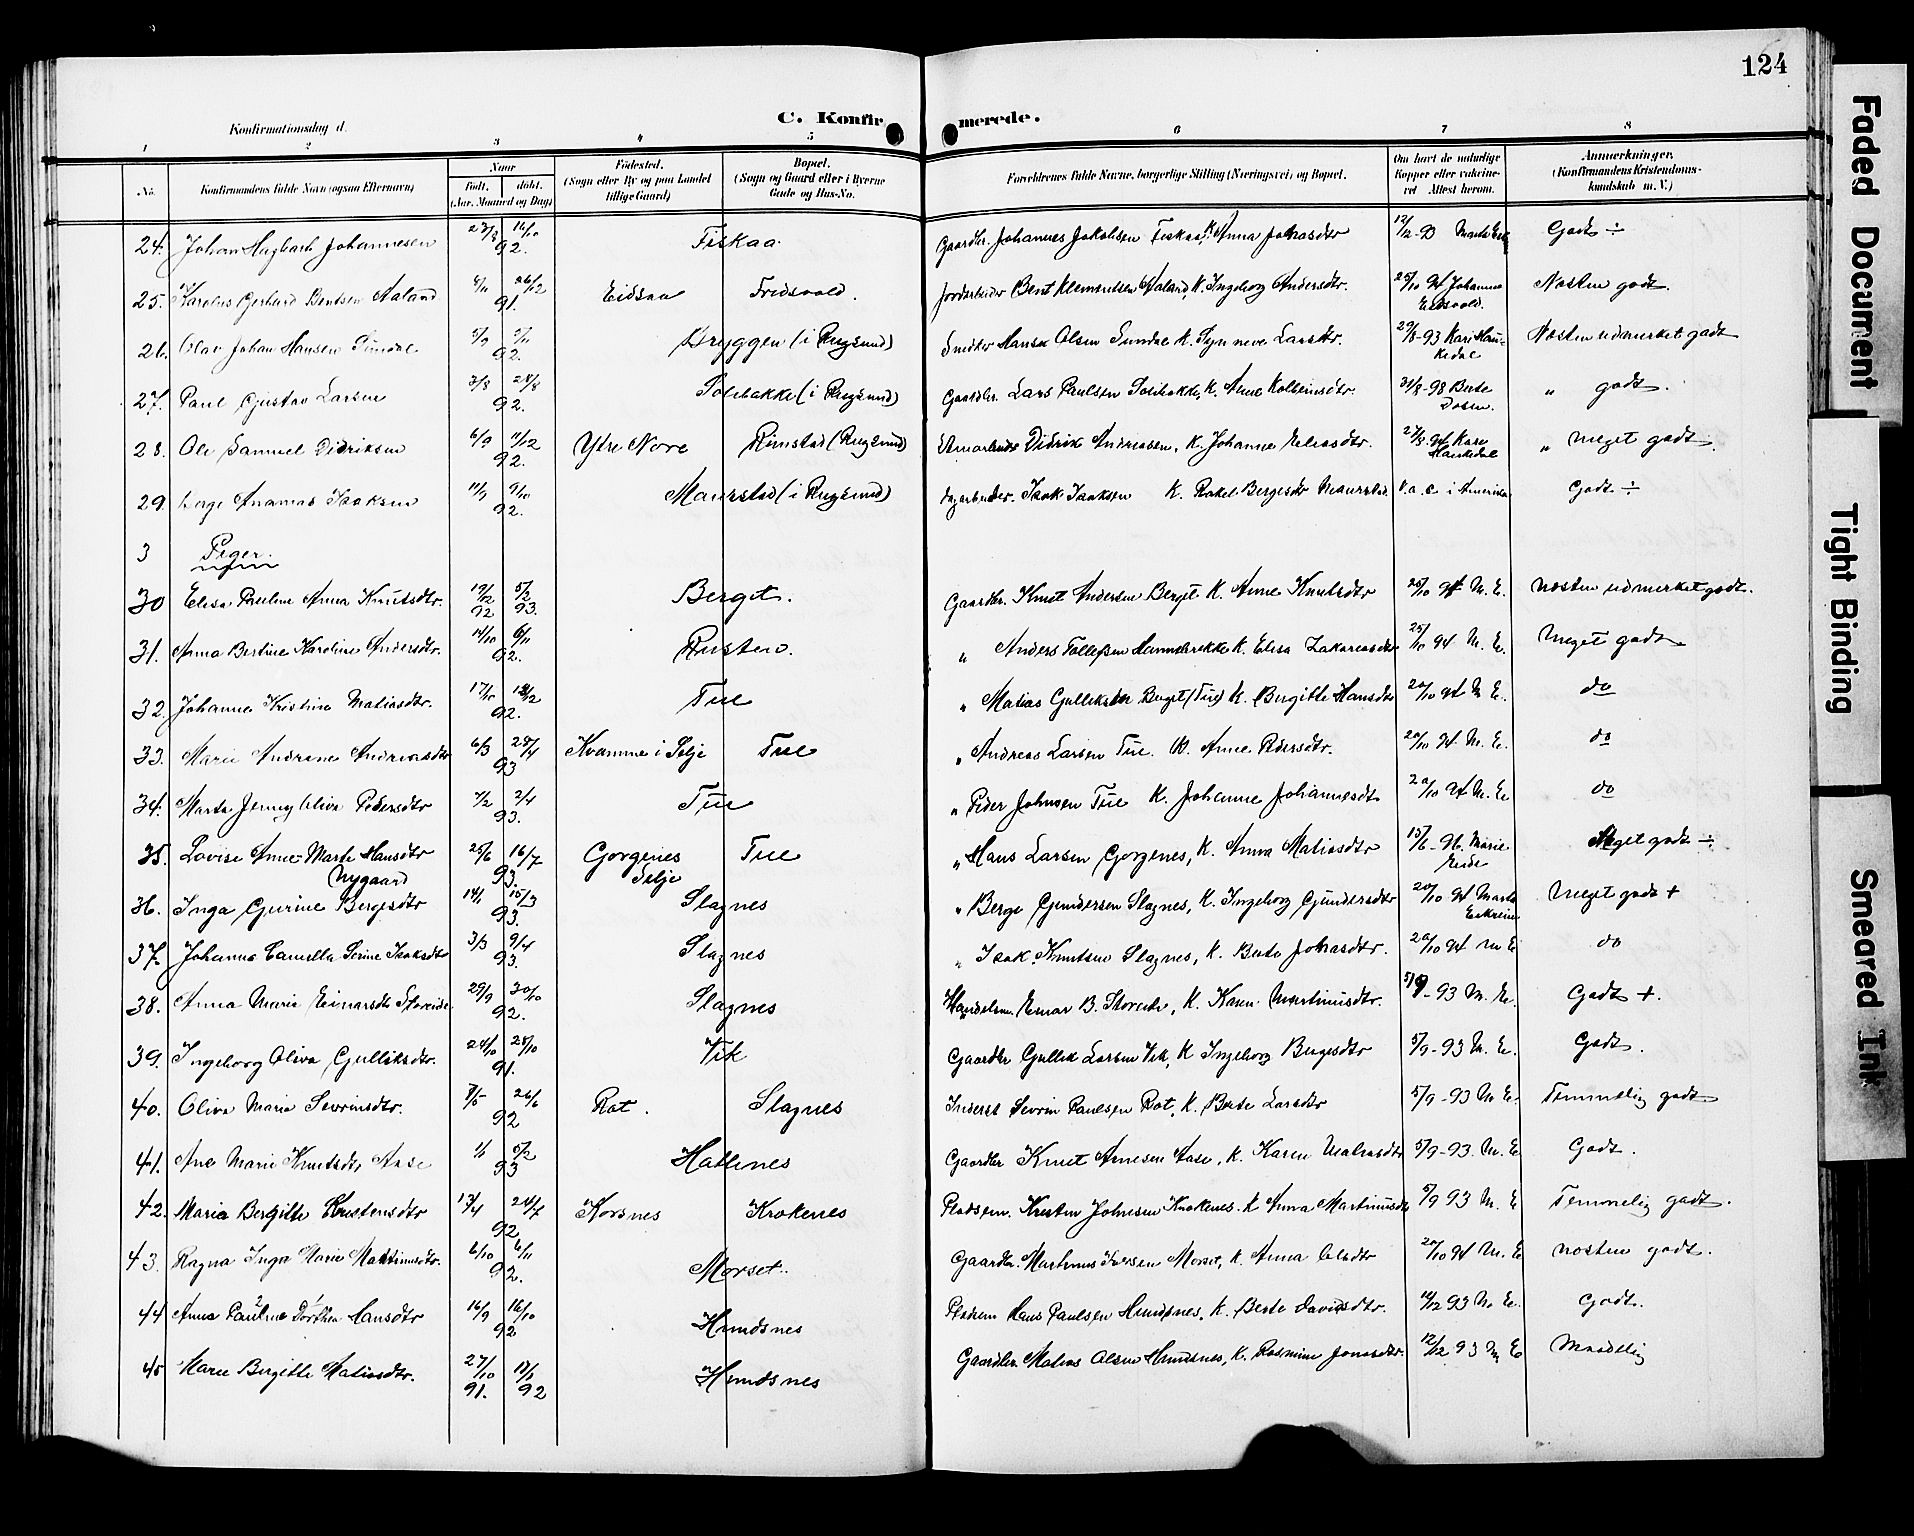 124
C. Konfirmerede.
Konfirmationsdag d.
1 2 3 4 5 6 7 8
No. Konfirmandens fulde Navn (ogsaa Efternavn) Naar født, døbt. (Aar, Maaned og Dag) Fødested. (Sogn eller By og paa Landet tillige Gaard) Bopæl. (Sogn og Gaard eller i Byerne Gade og Hus-No. Forældrenes fulde Navne, borgerlige Stilling (Næringsvei) og Bopæl. Om havt de naturlige Kopper eller vakcineret Attest herom. Anmærkninger. (Konfirmandens Kristendomskundskab m. V.)
24. Johan Johannesen 92. Fiskaa Gaardbr. Johannes Jakobsen Fiskaa, K. Anna Godt ÷
25. Karolus Gerhard Bentsen Aaland 26/12 91. Eidsaa Fredsvold. Bent Klemmetsen Aaland, K. Ingeborg Andersdtr. 25/10 94 Johanne Næsten godt.
26. Olav Johan Hansen Sundal 92. Bryggen (i Rugsund) Hans Olsen Sundal K. neé Larsdtr. 29/8-93 Kari Næsten udmerket godt
27. Paul Gustav Larsen 2/8 28/8 92. (i Rugsund) Gaardbr. Lars Paulsen K. Anne 31/8-98 Berte " godt.
28. Ole Samuel Didriksen 6/9 11/12 92. Ytre Nore Rimstad (Rugsund) Didrik Andreasen, K. Johanne Eliasdtr. Kari " Meget godt
29. Ananias Isaksen 11/9 9/10 92. Maurstad (i Rugsund) Dagarbeider. Isak Isaksen K. Rakel Bergesdtr Maurstad. v. a. c. i Amerika Godt ÷
3 Piger.
30 Elisa Pauline Anna Knutsdtr. 19/12 92 5/2 93. Berget. Gaardbr. Knut Andersen Berget K. Anne Knutsdtr 25/10 94 M. E. Næsten udmerket godt.
31. Anna Bertine Karoline Andersdtr. 14/10 6/11 92. Rusten. " Anders K. Elisa Zakariasdtr 25/10 94 M. E. Meget godt
32. Johanne Kristine Matiasdtr. 17/10 92. Tue " Matias Gulliksen Berget (Tue) K. Bergitte Hansdtr 20/10 94 M E. do
33. Marie Andrine Andreasdtr 6/3 93 Kvamme i Selje Tue " Andreas Larsen Tue. K. Anne Pedersdtr. 20/10 94 M. E. do
34. Marta Jenny Oliva Pedersdtr 7/2 2/4 93. Tue " Peder Johnsen Tue K. Johanne Johannesdtr 20/10 94 M. E. do
35. Lovise Anne Marte Hansdtr Nygaard 25/6 16/7 93. Gorgenes Selje Tue " Hans Larsen Gorgenes, K. Anna Matiasdtr 15/6-96. Marie Eide Meget godt ÷
36. Inga Gurine Bergesdtr 14/1 93. Slagnes " Berge Gundersen Slagnes, K. Ingeborg Gundersdtr 20/10 94 Marta Meget godt +
37. Johanne Camilla Serine Isaksdtr 3/3 9/4 93. Slagnes " Isak Knutsen Slagnes, K. Berte 20/10 94 M E do
38. Anna Marie Einarsdtr Støreide 29/9 30/10 92. Slagnes Handelsm. Einar B. Støreide, K. Karen Martinusdtr. 5/9-93 M. E. Godt +.
39. Ingeborg Oliva Gulliksdtr. 24/10 25/10 91. Vik Gaardbr Gullik Larsen Vik, K Ingeborg Bergesdtr 5/9-93 M. E. Godt.
40. Oliva Marie Severinsdtr. 26/6 92 Rot. Slagnes Inderst Severin Paulsen Rot, K. Berte Larsdtr 5/9-93 M E. Temmelig godt
41. Ane Marie Knutsdtr Aase 1/1 5/2 93 Hallenes Gaardbr Knut Arnesen Aase, K. Karen 5/9-93. M. E Godt.
42. Marie Bergitte Kristensdtr 13/4 24/7 92 Korsnes Krokenes Pladsm. Kristen Johnsen Krokenes. K Anna Martinusdtr 5/9 93 M. E Temmelig godt.
43. Ragna Inga Marie Martinusdtr. 6/10 6/11 92. Morset. Gaardbr. Martinus Iversen Morset, K. Anna Olsdtr 20/10 94 M. E Næsten godt.
44 Anna Pauline Dorthea Hansdtr 16/9 16/10 92 Hundsnes Pladsm Hans Paulsen Hundsnes, K. Berte Davidsdtr. 12/12 93 M. E. Godt.
45 Marie Bergitte Matiasdtr. 27/10 91. 92 Hundsnes Gaardbr Matias Olsen Hundsnes, K. Rasmine Jonasdtr. 12/12 93 M E Maadelig
Faded Document
Tight Binding
Smeared Ink